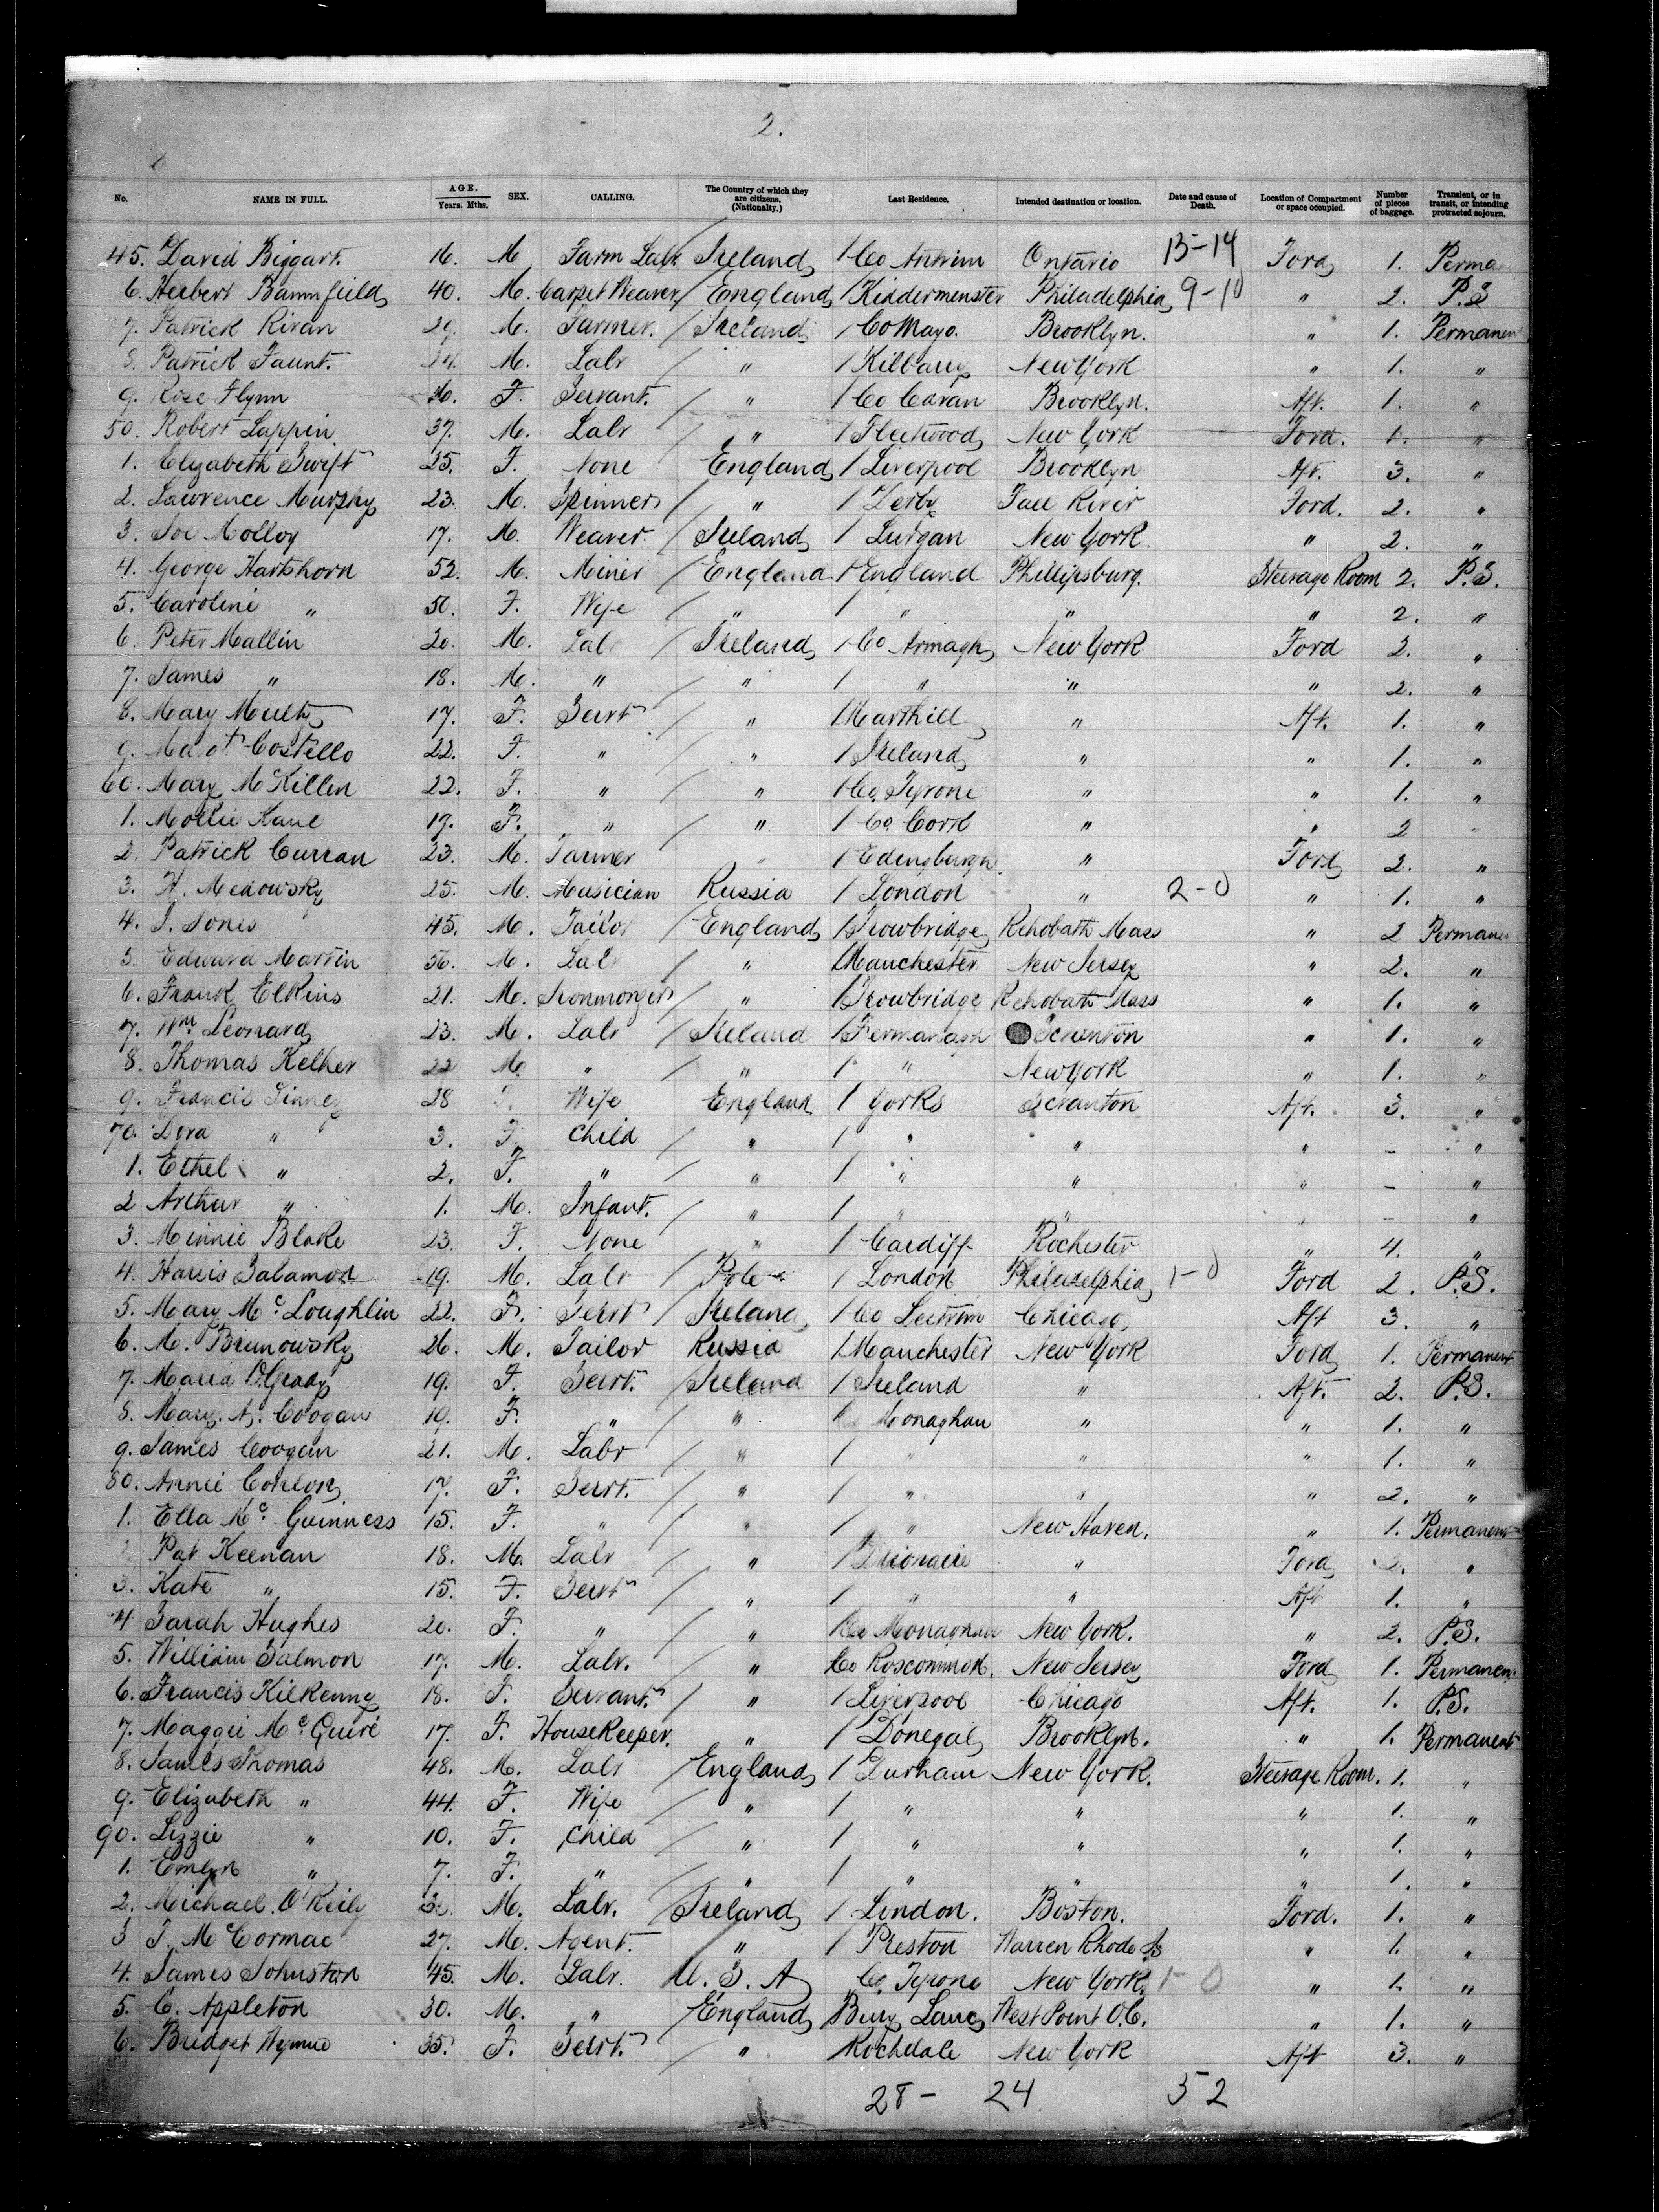 2.
No. NAME IN FULL. AGE. Years. Mths. SEX. CALLING. The Country of which they are citizens. (Nationality.) Last Residence. Intended destination or location. Date and cause of Death. Location of Compartment or space occupied. Number of pieces of baggage. Transient, or in transit, or intending protracted sojourn.
45. David Biggart. 16. M Farm Labr Ireland 1 Co Antrim Ontario 15-14 Ford 1. Perma
6. Herbert Bammfield 40. M. Carpet Weaver England 1 Kiddermenster Philadelphia 9-10 " 2. P.S
7. Patrick Kivan 29. M. Farmer. Ireland 1 Co Mayo. Brooklyn. " 1. Permanen
8. Patrick Faunt. M. Labr " 1 Kilbarry New York " 1. "
9. Rose Flynn 36. F. Servant. " 1 Co Cavan Brooklyn. Aft. 1. "
50. Robert Lappin. 37. M. Labr " 1 Fleetwood New York Ford. 1. "
1. Elizabeth Swift 25. F. None England 1 Liverpool Brooklyn Aft. 3. "
2. Lawrence Murphy 23. M. Spinner " 1 Derby Fall River Ford. 2. "
3. Joe Molloy 17. M. Weaver. Ireland 1 Lurgan New York " 2. "
4. George Hartshorn 52. M. Miner England 1 England Phillipsburg. Steerage Room 2. P.S.
5. Caroline " 50. F. Wife " 1 " " " 2. "
6. Peter Mallin 20. M. Lab Ireland 1 Co Armagh New York Ford 2. "
7. James " 18. M. " " 1 " " " 2. "
8. Mary 17. F. Servt " 1 Marthill " Aft. 1. "
9. Costello 22. F. " " 1 Ireland " " 1. "
60. Mary McKillen 22. F. " " 1 Co. Tyrone " " 1. "
1. Mollie Kane 17. F. " " 1 Co. Cork " " 2
2. Patrick Curran 23. M. Farmer " 1 Edingburgh. " Ford 2. "
3. H. Medowsky 25. M. Musician Russia 1 London " 2-0 " 1. "
4. J. Jones 45. M. Tailor England 1 Trowbridge Rehobath Mass " 2 Permanen
5. Edward Martin 56. M. Lab " 1 Manchester New Jersey " 2. "
6. Frank Elkins 21. M. Ironmonger " 1 Trowbridge Rehobath Mass " 1. "
7. Wm Leonard 23. M. Labr Ireland 1 Fermanagh Scranton " 1. "
8. Thomas Kelher 22 M. " " 1 " New York " 1. "
9. Francis Linney 28 Wife England 1 Yorks Scranton Aft. 3. "
70. Dora " 3. F. Child " 1 " " " - "
1. Ethel " 2. F. " " 1 " " " - "
2 Arthur " 1. M. Infant. " 1 " " " - "
3. Minnie Blake 23. F. None " 1 Cardiff Rochester " 4. "
4. Harris Salamon 19. M. Labr Pole 1 London Philadelphia 1-0 Ford 2. P.S.
5. Mary McLoughlin 22. F. Servt Ireland 1 Co Leitrim Chicago, Aft 3. "
6. M. Brunowsky 26. M. Tailor Russia 1 Manchester New York Ford 1. Permanent
7. Maria O'Grady 19. F. Servt. Ireland 1 Ireland " Aft. 2. P.S.
8. Mary. A. Coogan 19. F. " " Co Monaghan " " 1. "
9. James Coogan 21. M. Labr " 1 " " " 1. "
80. Annie Conlon 17. F. Servt. " 1 " " " 2. "
1. Ella Mc Guinness 15. F. " " 1 " New Haven. " 1. Permanent
Pat Keenan 18. M. Labr " 1 " Ford 2. "
3. Kate " 15. F. Servt " 1 " " Aft 1. "
4 Sarah Hughes 20. F. " " Co Monaghan New York. " 2. P.S.
5. William Salmon 17. M. Labr. " Co Roscommon. New Jersey Ford 1. Permanen
6. Francis Kilkenny 18. F. Servant. " 1 Liverpool Chicago Aft. 1. P.S.
7. Maggie McGuire 17. F. HouseKeeper. " 1 Donegal Brooklyn. " 1. Permanent
8. James Thomas 48. M. Labr England 1 Durham New York. Steerage Room. 1. "
9. Elizabeth " 44. F. Wife " 1 " " " 1. "
90. Lizzie " 10. F. Child " 1 " " " 1. "
1. Emlyn " 7. F. " " 1 " " " 1. "
2. Michael. O'Reily M. Labr. Ireland 1 London. Boston. Ford. 1. "
3 J. McCormac 27. M. Agent. " 1 Preston Warren Rhode Is " 1. "
4. James Johnston 45. M. Labr. U. S. A Co. Tyrone New York. 1-0 " 1. "
5. C. Appleton 30. M. " England Bury Lanc West Point O.C. " 1. "
6. Bridget Wynne 35. F. Servt. " Rochdale New York Aft 3. "
28- 24 52